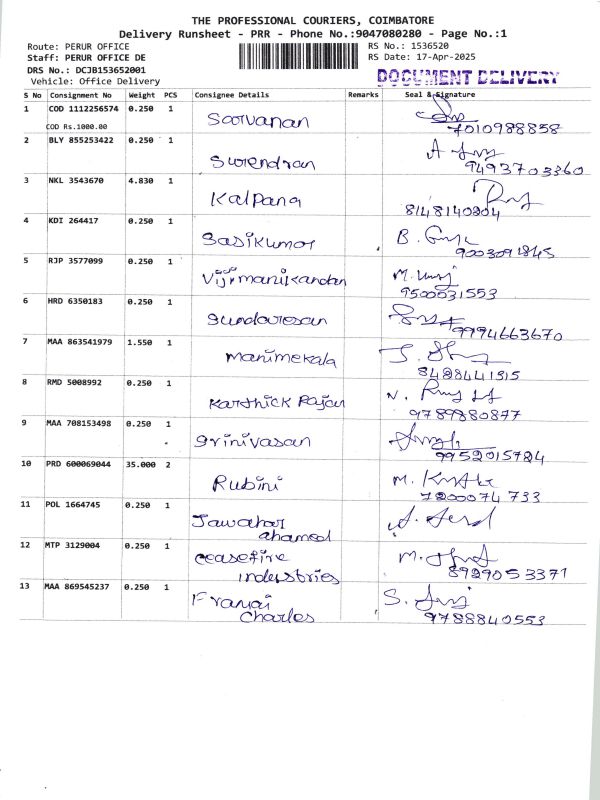 THE PROFESSIONAL COURIERS, COIMBATORE
Delivery Runsheet - PRR - Phone No.:9047080280 - Page No.:1
Route: PERUR OFFICE RS No.: 1536520
Staff: PERUR OFFICE DE RS Date: 17-Apr-2025
DRS No.: DCJB153652001
Vehicle: Office Delivery DOCUMENT DELIVERY
S No Consignment No Weight PCS Consignee Details Remarks Seal & Signature
1 COD 1112256574 0.250 1 Saravanan
COD Rs.1000.00 7010988858
2 BLY 855253422 0.250 1 Surendran
9493703360
3 NKL 3543670 4.830 1 Kalpana
8148140304
4 KDI 264417 0.250 1 Sasikumar
9003091845
5 RJP 3577099 0.250 1 Vijimanikandan
9500531553
6 HRD 6350183 0.250 1 Sundaresan
9994663670
7 MAA 863541979 1.550 1 Manimekala
8488441515
8 RMD 5008992 0.250 1 Karthick Rajan
9789880877
9 MAA 708153498 0.250 1 Srinivasan
9952015724
10 PRD 600069044 35.000 2 Rubini
7200074733
11 POL 1664745 0.250 1 Jawahar
ahamed
12 MTP 3129004 0.250 1 Ceasefire
industries 8929053371
13 MAA 869545237 0.250 1
Charles 9788840553